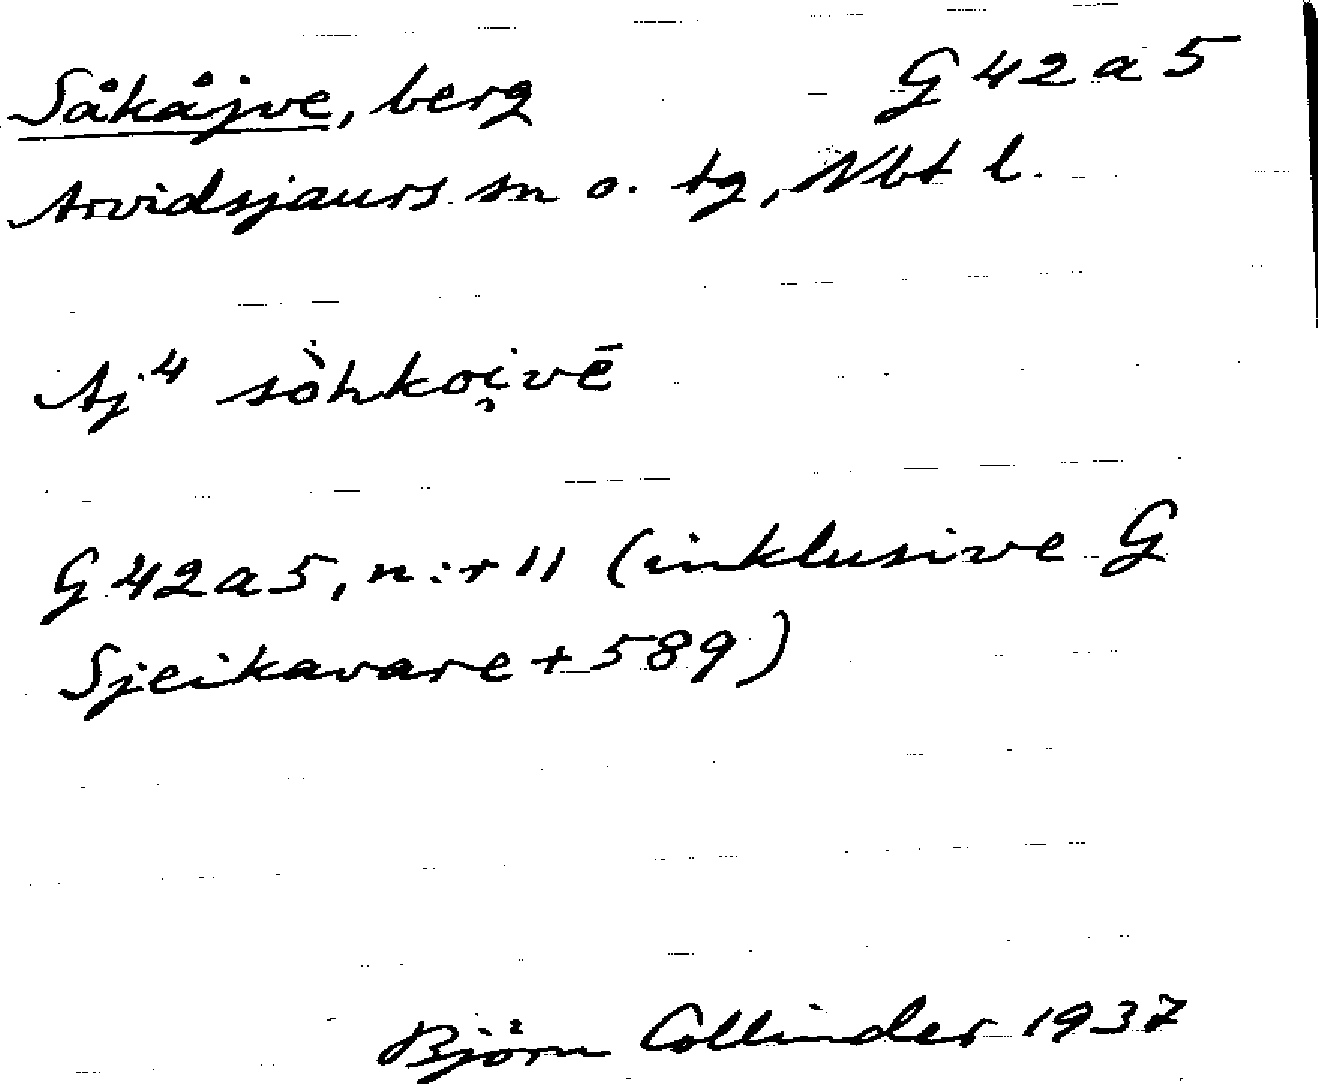 Såkåjve, berg G 42 a 5
Arvidsjaurs sn o. tg, Nbt l.
Aj⁴ sòhkoi̯vē
G 42 a 5, n:r 11 (inklusive G
Sjeikavare + 589)
Björn Collinder 1937